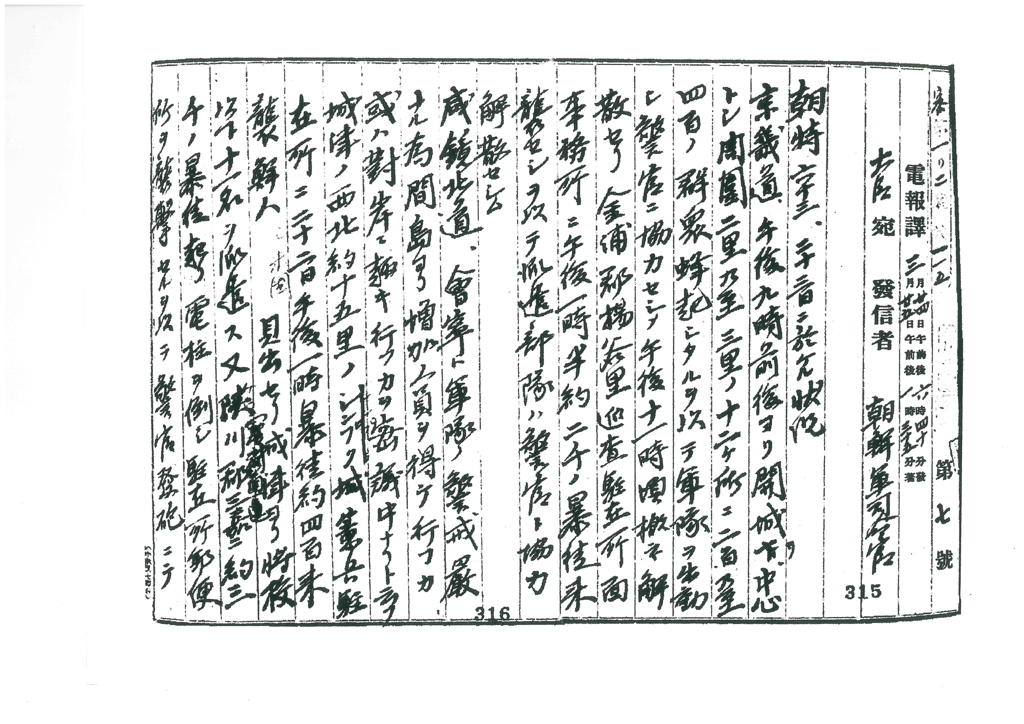 電報譯
三月廿四日午後六時四十分發
三月廿五日午前一時三五分著
第七號
大臣宛 發信者 朝鮮軍司令官
315
朝特 二十三日ニ於ケル状況
京畿道、午後九時前後ヨリ開城ヲ中心
トシ周圍二里乃至三里ノ十二ケ所ニ二百乃至
四百ノ群衆蜂起シタルヲ以テ軍隊ヲ出動
シ警官ニ協力セシメ午後十一時頃概ネ解
散セリ 金浦郡楊谷里巡査駐在所面
事務所ニ午後一時半約二千ノ暴徒来
襲セシヲ以テ派遣部隊ハ警官ト協力
解散セシム
咸鏡北道、會寧ハ軍隊ノ警戒嚴
ナル為間島ヨリ増加人員ヲ得テ行フカ
或ハ對岸ニ赴キ行フカヲ密議中ナリト云フ
城津ノ西北約十五里ノ 城 憲兵駐
在所ニ二十二日午後一時暴徒約四百来
襲鮮人 見出セリ城津ヨリ將校
以下十一名ヲ派遣ス又陜川郡三嘉ニ約三
千ノ暴徒起リ電柱ヲ倒シ駐在所郵便
所ヲ襲撃セルヲ以テ警官發砲ニテ
316